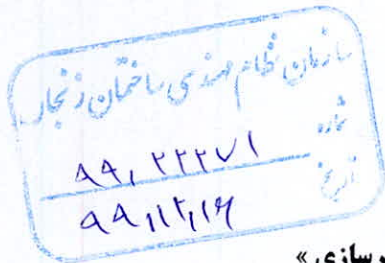 سازمان نظام مهندسی ساختمان زنجان
شماره
۹۹،۲۲۲۷۱
تاریخ
۹۹،۱۲،۱۶
رسازی »